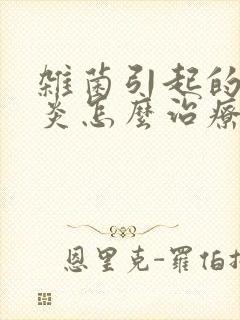 雜菌引起的
炎怎麼治療
恩里克-羅伯